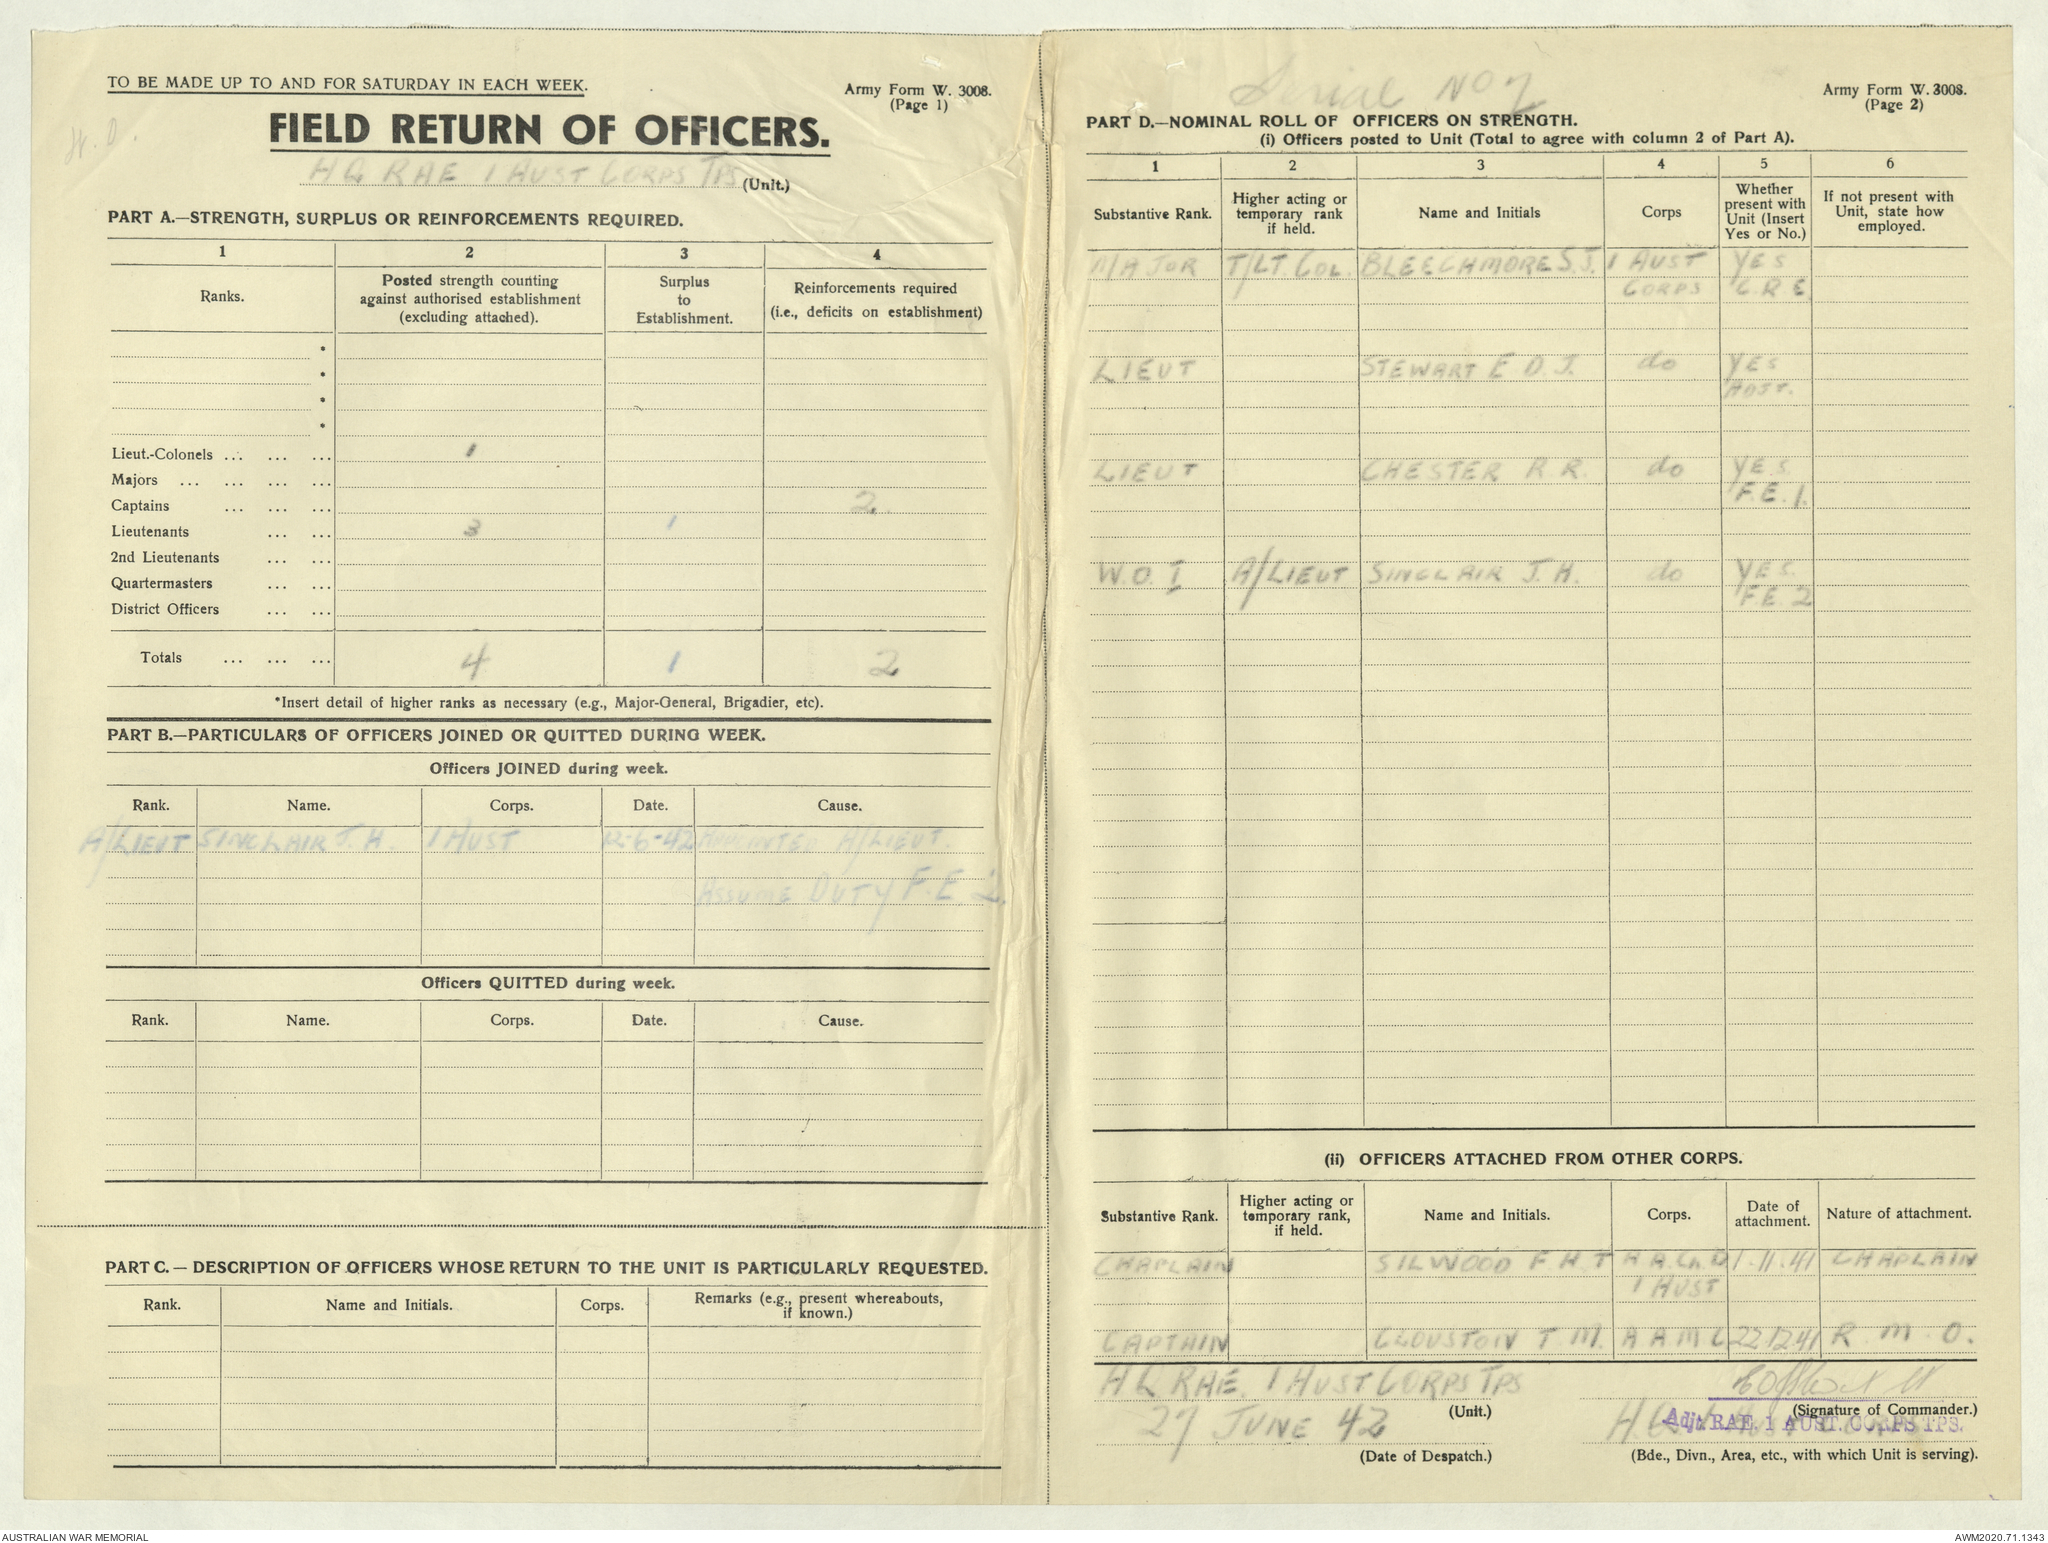 TO BE MADE UP TO AND FOR SATURDAY IN EACH WEEK.
Army Form W. 3008.
(Page 1)
W.D.
FIELD RETURN OF OFFICERS.
HQ RAE 1 AUST CORPS TPS (Unit.)
PART A.—STRENGTH, SURPLUS OR REINFORCEMENTS REQUIRED.
1 2 3 4
Ranks.
Posted strength counting
against authorised establishment
(excluding attached).
Surplus
to
Establishment.
Reinforcements required
(i.e., deficits on establishment)
*
*
*
*
Lieut.-Colonels ... ... ... 1
Majors ... ... ... ...
Captains ... ... ... 2
Lieutenants ... ... 3 1
2nd Lieutenants ... ...
Quartermasters ... ...
District Officers ... ...
Totals ... ... ... 4 1 2
*Insert detail of higher ranks as necessary (e.g., Major-General, Brigadier, etc).
PART B.—PARTICULARS OF OFFICERS JOINED OR QUITTED DURING WEEK.
Officers JOINED during week.
Rank. Name. Corps. Date. Cause.
A/LIEUT SINCLAIR J.H. 1 AUST 12-6-42 APPOINTED A/LIEUT.
ASSUME DUTY F.E. 2.
Officers QUITTED during week.
Rank. Name. Corps. Date. Cause.
PART C.— DESCRIPTION OF OFFICERS WHOSE RETURN TO THE UNIT IS PARTICULARLY REQUESTED.
Rank. Name and Initials. Corps. Remarks (e.g., present whereabouts,
if known.)
Serial NO 7
Army Form W. 3008.
(Page 2)
PART D.—NOMINAL ROLL OF OFFICERS ON STRENGTH.
(i) Officers posted to Unit (Total to agree with column 2 of Part A).
1 2 3 4 5 6
Substantive Rank.
Higher acting or
temporary rank
if held.
Name and Initials
Corps
Whether
present with
Unit (Insert
Yes or No.)
If not present with
Unit, state how
employed.
MAJOR T/LT COL. BLEECHMORE S.J. 1 AUST YES
CORPS C.R.E.
LIEUT STEWART E D.J. do YES
ADJT.
LIEUT CHESTER R R. do YES.
F.E. 1.
W.O. I A/LIEUT SINCLAIR J.H. do YES.
F.E. 2
(ii) OFFICERS ATTACHED FROM OTHER CORPS.
Substantive Rank.
Higher acting or
temporary rank,
if held.
Name and Initials.
Corps.
Date of
attachment.
Nature of attachment.
CHAPLAIN SILWOOD F H T A.A.Ch.D 1.11.41 CHAPLAIN
1 AUST
CAPTAIN CLOUSTON T M. A A M C 22.12.41 R. M. O.
HQ RAE. 1 AUST CORPS TPS
(Unit.)
(Signature of Commander.)
Adjt RAE. 1 AUST. CORPS TPS.
27 JUNE 42
(Date of Despatch.)
(Bde., Divn., Area, etc., with which Unit is serving).
AUSTRALIAN WAR MEMORIAL
AWM2020.71.1343